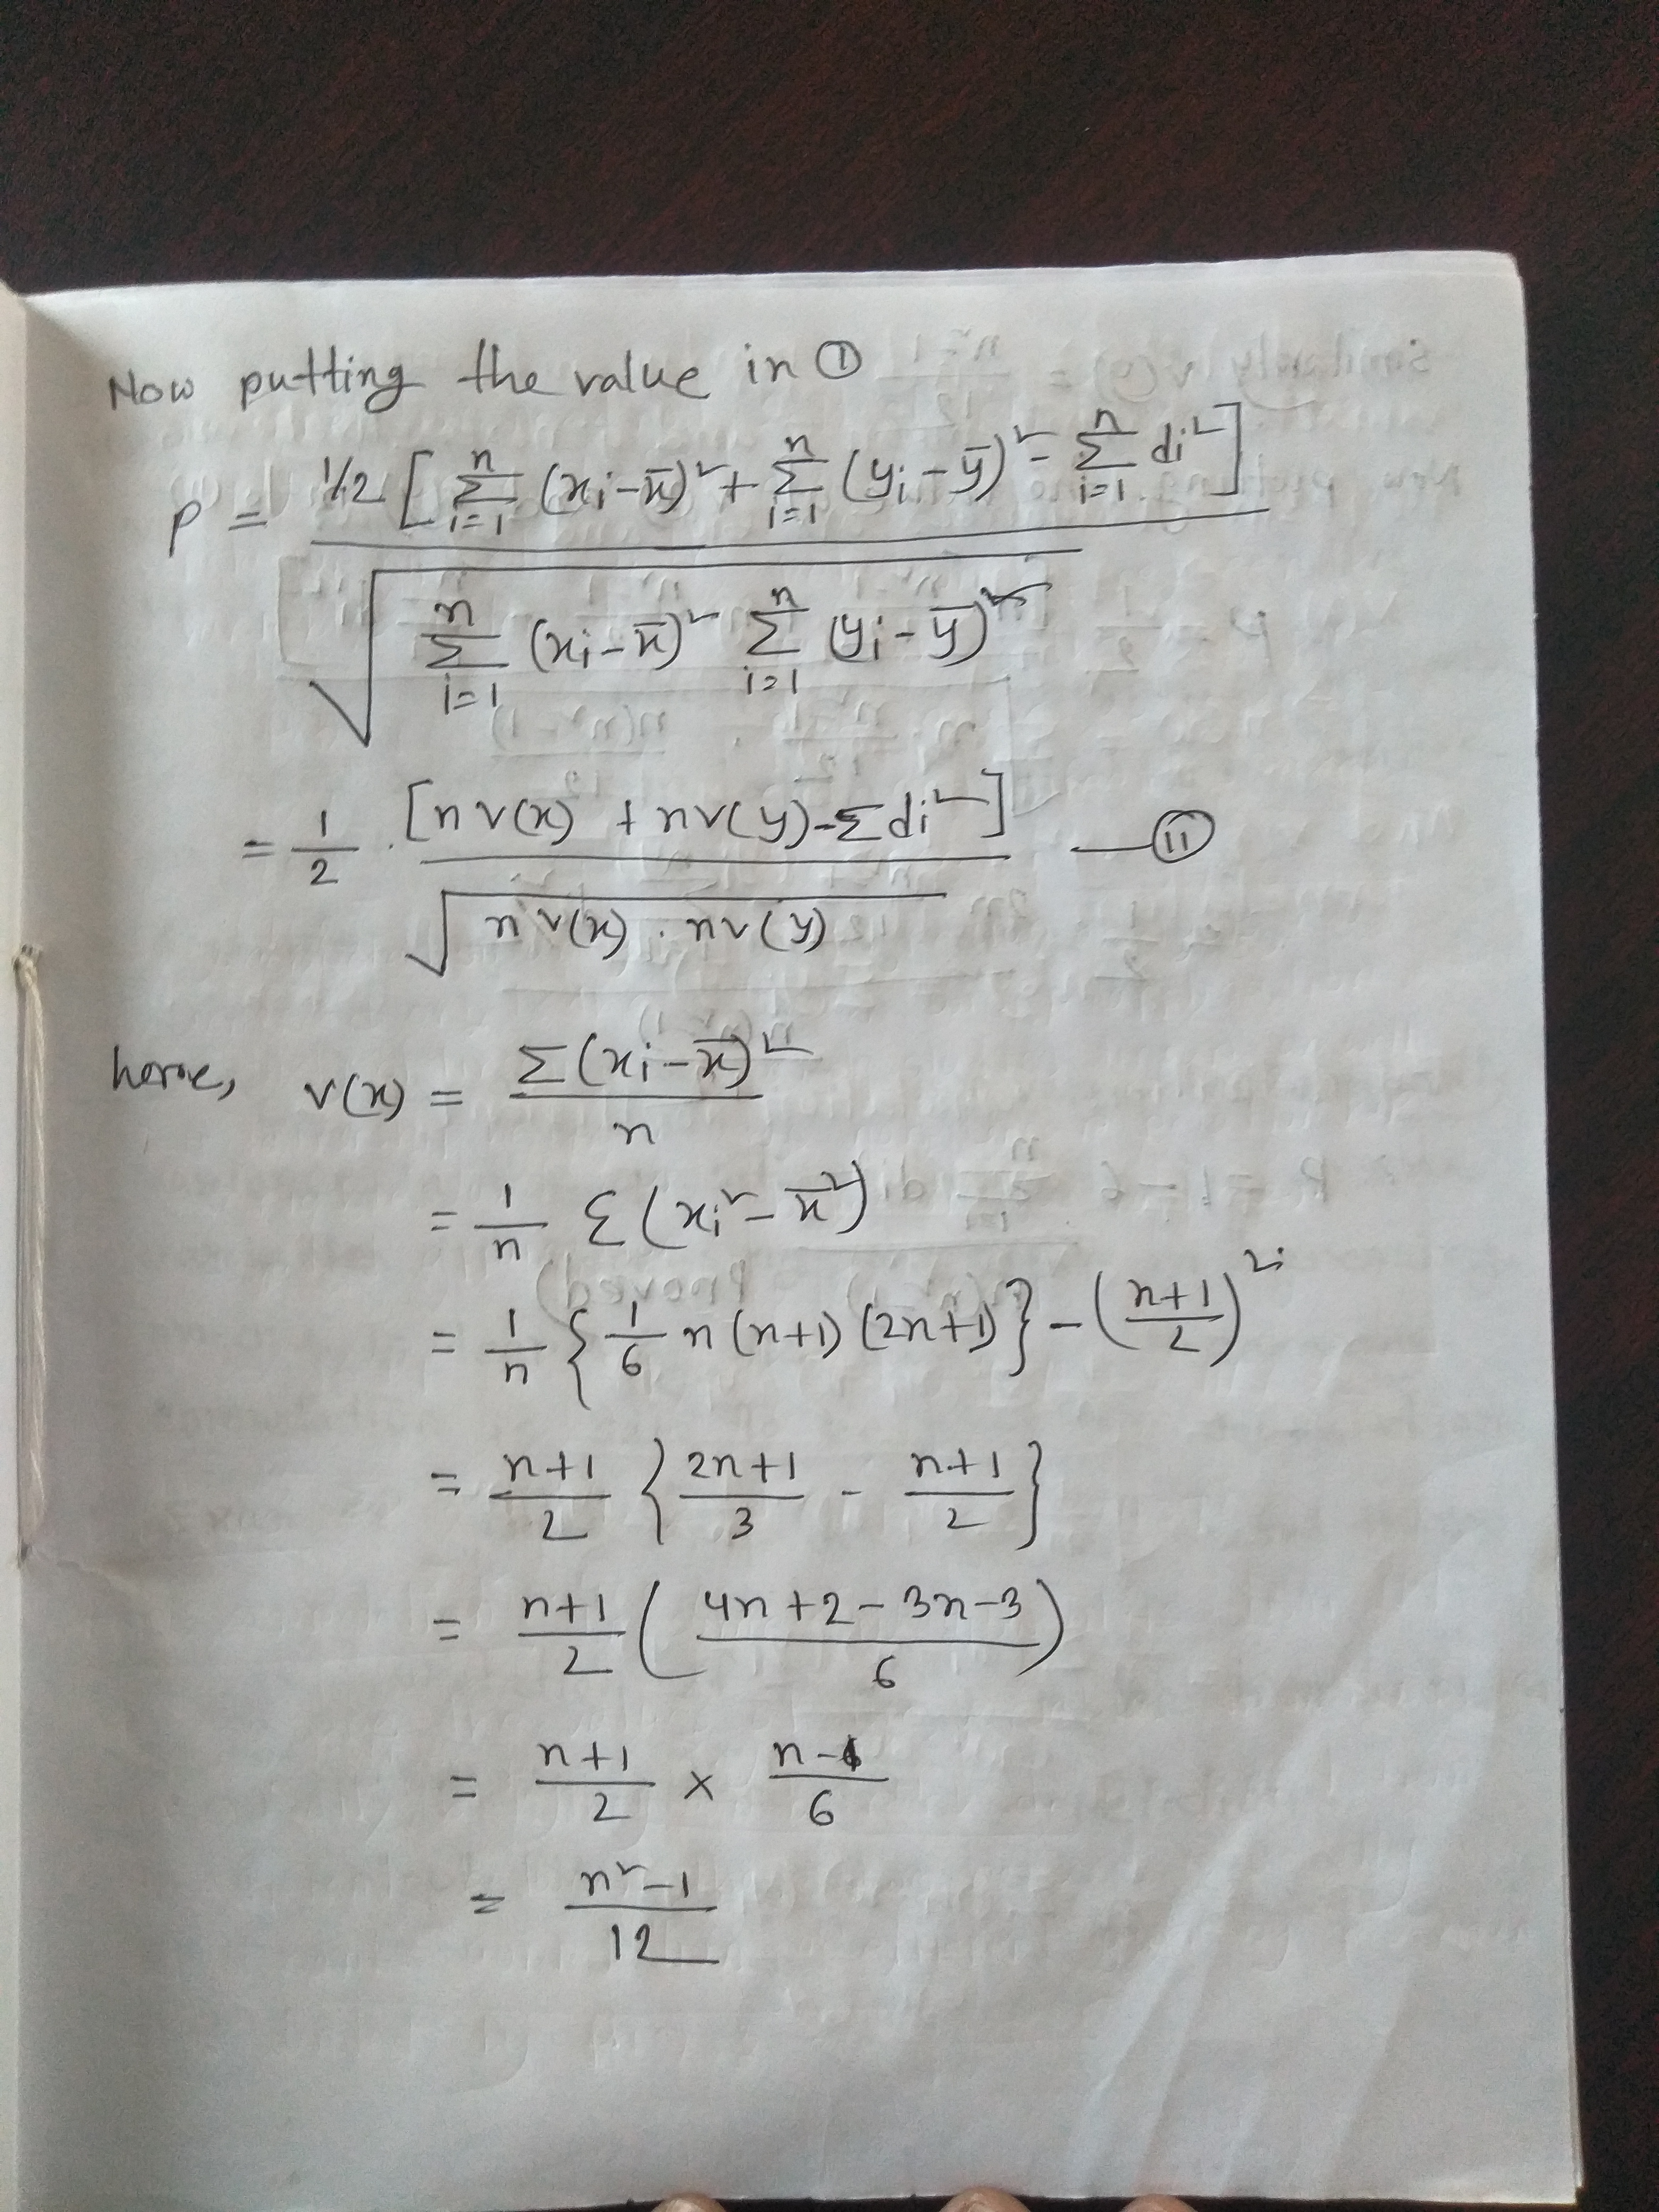 Now putting the value in ①
P = 1/2 [ Σ_{i=1}^{n} (xi - x̄)² + Σ_{i=1}^{n} (yi - ȳ)² - Σ_{i=1}^{n} di² ] / √( Σ_{i=1}^{n} (xi - x̄)² Σ_{i=1}^{n} (yi - ȳ)² )
= 1/2 . [n v(x) + n v(y) - Σ di²] / √( n v(x) . n v(y) ) — ⑪
here, v(x) = Σ(xi - x̄)² / n
= 1/n Σ (xi² - x̄²)
= 1/n { 1/6 n (n+1) (2n+1) } - ( (n+1)/2 )²
= (n+1)/2 { (2n+1)/3 - (n+1)/2 }
= (n+1)/2 ( (4n+2-3n-3)/6 )
= (n+1)/2 × (n-1)/6
= (n²-1)/12